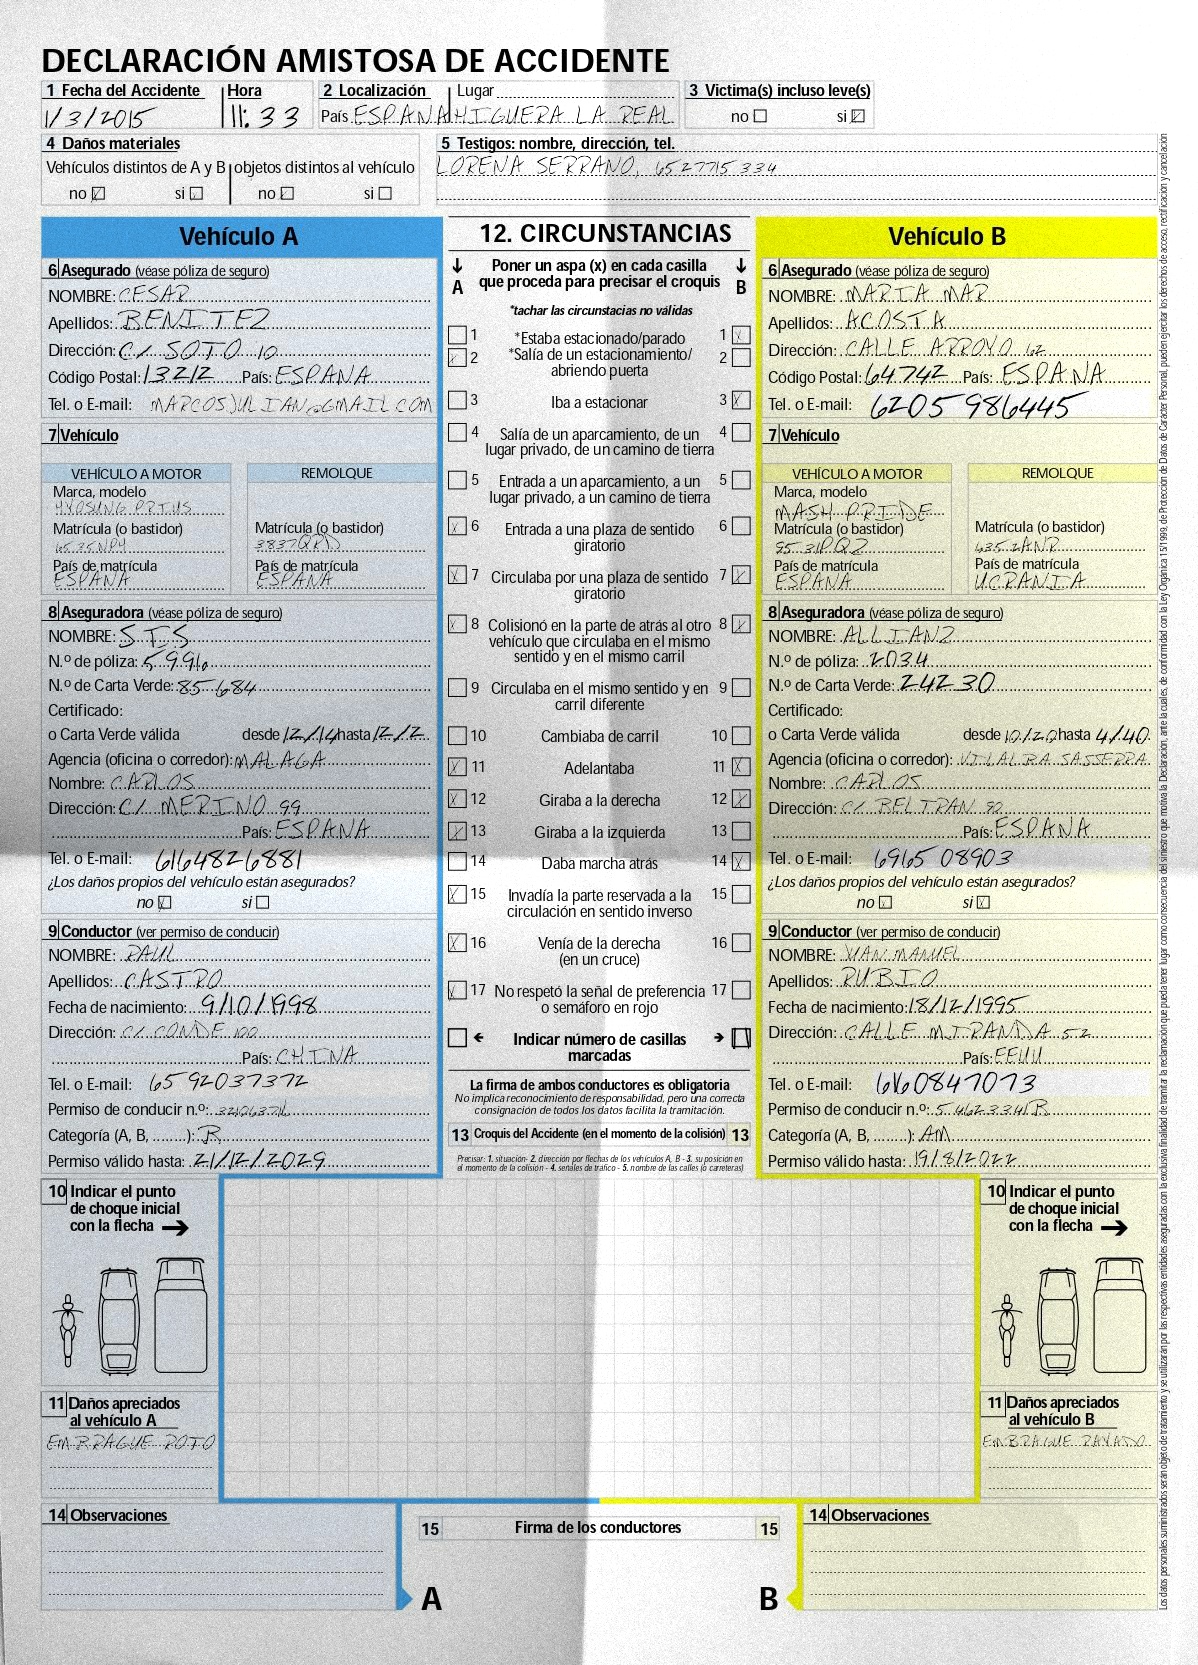 DECLARACIÓN AMISTOSA DE ACCIDENTE
1 Fecha del Accidente Hora
1/3/2015 11:33
2 Localización Lugar
País ESPAÑA HIGUERA LA REAL
3 Victima(s) incluso leve(s)
no si
4 Daños materiales
Vehículos distintos de A y B objetos distintos al vehículo
no si no si
5 Testigos: nombre, dirección, tel.
LORENA SERRANO, 6527715334
Vehículo A
6 Asegurado (véase póliza de seguro)
NOMBRE: CESAR
Apellidos: BENITEZ
Dirección: C/ SOTO 10
Código Postal: 13212 País: ESPAÑA
Tel. o E-mail: MARCOSJULIAN@GMAIL.COM
7 Vehículo
VEHÍCULO A MOTOR REMOLQUE
Marca, modelo
HYOSUNG PRIUS
Matrícula (o bastidor) Matrícula (o bastidor)
6535NPY 3837QRD
País de matrícula País de matrícula
ESPAÑA ESPAÑA
8 Aseguradora (véase póliza de seguro)
NOMBRE: STS
N.º de póliza: 5991
N.º de Carta Verde: 85 684
Certificado:
o Carta Verde válida desde 12/14 hasta 12/2
Agencia (oficina o corredor): MALAGA
Nombre: CARLOS
Dirección: C/ MERINO 99
País: ESPAÑA
Tel. o E-mail: 6164826881
¿Los daños propios del vehículo están asegurados?
no si
9 Conductor (ver permiso de conducir)
NOMBRE: RAUL
Apellidos: CASTRO
Fecha de nacimiento: 9/10/1998
Dirección: C/ CONDE 100
País: CHINA
Tel. o E-mail: 6592037372
Permiso de conducir n.º:
Categoría (A, B, ........): B
Permiso válido hasta: 21/12/2029
12. CIRCUNSTANCIAS
A B
Poner un aspa (x) en cada casilla
que proceda para precisar el croquis
*tachar las circunstacias no válidas
1 *Estaba estacionado/parado 1
2 *Salía de un estacionamiento/ 2
abriendo puerta
3 Iba a estacionar 3
4 Salía de un aparcamiento, de un 4
lugar privado, de un camino de tierra
5 Entrada a un aparcamiento, a un 5
lugar privado, a un camino de tierra
6 Entrada a una plaza de sentido 6
giratorio
7 Circulaba por una plaza de sentido 7
giratorio
8 Colisionó en la parte de atrás al otro 8
vehículo que circulaba en el mismo
sentido y en el mismo carril
9 Circulaba en el mismo sentido y en 9
carril diferente
10 Cambiaba de carril 10
11 Adelantaba 11
12 Giraba a la derecha 12
13 Giraba a la izquierda 13
14 Daba marcha atrás 14
15 Invadía la parte reservada a la 15
circulación en sentido inverso
16 Venía de la derecha 16
(en un cruce)
17 No respetó la señal de preferencia 17
o semáforo en rojo
Indicar número de casillas
marcadas
La firma de ambos conductores es obligatoria
No implica reconocimiento de responsabilidad, pero una correcta
consignación de todos los datos facilita la tramitación.
13 Croquis del Accidente (en el momento de la colisión) 13
Precisar: 1. situación- 2. dirección por flechas de los vehículos A, B - 3. su posición en
el momento de la colisión - 4. señales de tráfico - 5. nombre de las calles (o carreteras)
Vehículo B
6 Asegurado (véase póliza de seguro)
NOMBRE: MARIA MAR
Apellidos: ACOSTA
Dirección: CALLE ARROYO 62
Código Postal: 64742 País: ESPAÑA
Tel. o E-mail: 6205986445
7 Vehículo
VEHÍCULO A MOTOR REMOLQUE
Marca, modelo
MASH PRIDE
Matrícula (o bastidor) Matrícula (o bastidor)
9531PQZ 6352ANR
País de matrícula País de matrícula
ESPAÑA UCRANIA
8 Aseguradora (véase póliza de seguro)
NOMBRE: ALLIANZ
N.º de póliza: 2034
N.º de Carta Verde: 24230
Certificado:
o Carta Verde válida desde 10/20 hasta 4/40
Agencia (oficina o corredor): VILALBA SASSERRA
Nombre: CARLOS
Dirección: C/ BELTRAN 92
País: ESPAÑA
Tel. o E-mail: 6965 08903
¿Los daños propios del vehículo están asegurados?
no si
9 Conductor (ver permiso de conducir)
NOMBRE: JUAN MANUEL
Apellidos: RUBIO
Fecha de nacimiento: 18/12/1995
Dirección: CALLE MIRANDA 52
País: EEUU
Tel. o E-mail: 6160847073
Permiso de conducir n.º: 54623341R
Categoría (A, B, ........): AM
Permiso válido hasta: 19/8/2022
10 Indicar el punto
de choque inicial
con la flecha
11 Daños apreciados
al vehículo A
EMBRAGUE ROTO
14 Observaciones
15 Firma de los conductores 15
A B
10 Indicar el punto
de choque inicial
con la flecha
11 Daños apreciados
al vehículo B
EMBRAGUE RAYADO
14 Observaciones
Los datos personales suministrados serán objeto de tratamiento y se utilizarán por las respectivas entidades aseguradas con la exclusiva finalidad de tramitar la reclamación que pueda tener lugar como consecuencia del siniestro que motiva la Declaración, ante la cuales, de conformidad con la Ley Orgánica 15/1999, de Protección de Datos de Carácter Personal, pueden ejercitar los derechos de acceso, rectificación y cancelación